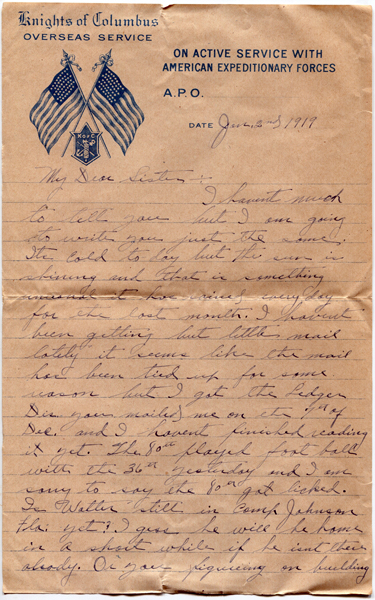 Knights of Columbus
OVERSEAS SERVICE
ON ACTIVE SERVICE WITH
AMERICAN EXPEDITIONARY FORCES
A.P.O.
K of C
DATE Jan. 2nd 1919
My Dear Sister:
I havent much
to tell you but I am going
to write you just the same.
Its cold to day but the sun is
shining and that is something
unusual it has rained every day
for the last month. I havent
been getting but little mail
lately it seems like the mail
has been tied up for some
reason but I got the Ledger
Dis. you mailed me on the of
Dec. and I havent finished reading
it yet. The 80th played foot ball
with the 36th yesterday and I am
sorry to say the 80th got licked.
Is Walter still in Camp Johnson
Fla. yet? I gess he will be home
in a short while if he isnt there
alrady. Are your figureing on building